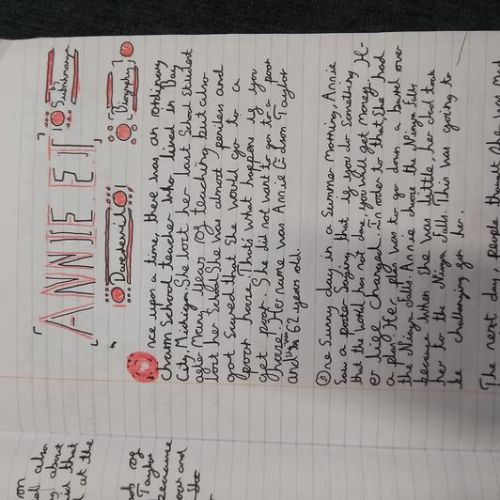 "ANNIE ET"
Daredevil!
Biography!
Once upon a time, there was an ordinary
Charm School teacher who lived in Bay
City, Michigan. She lost her last School Student
after Many years of teaching but also
lost her School. She was almost peniless and
got Scared that She would go to a
poor house. That's what happens if you
get poor. She did not want to go to a poor
house! Her name was Annie Edson Taylor
and was 62 years old.
One Sunny day in a Summer Morning Annie
Saw a poster Saying that if you do Something
that the world has not done, you will get money. H-
er life Changed. In order to that, She had
a plan. Her plan was to go down a barrel over
the Niagra falls. Annie choose the Niagra falls
because when she was little, her dad took
her to the Niagra falls. This was going to
be challenging for her.
The next day people thought She was Mad
also
about
that
at the
of
Taylor
because
and
the